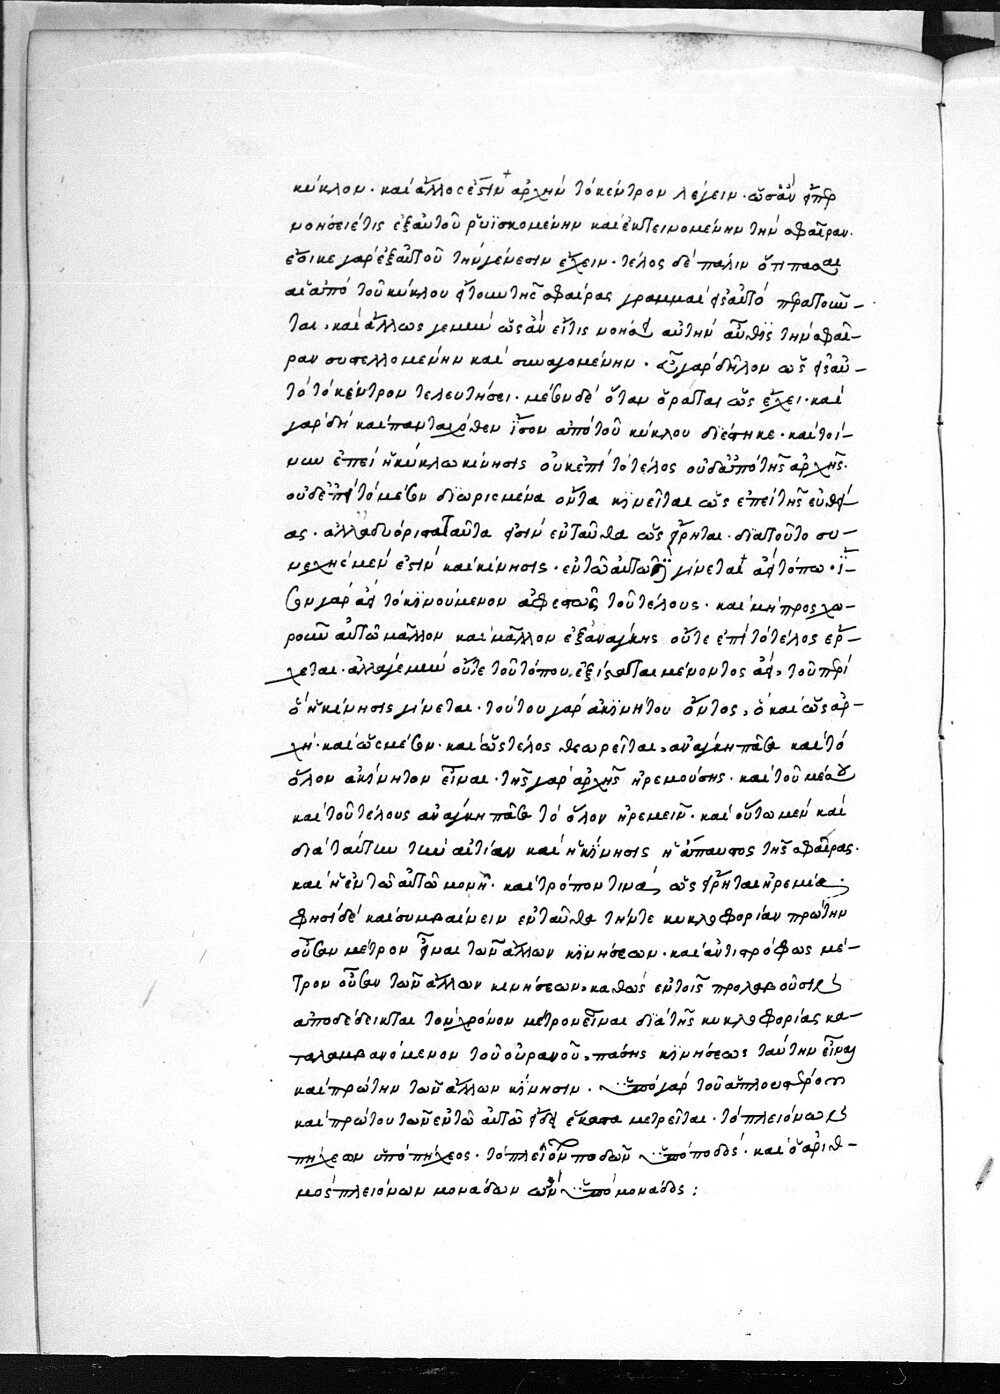 κύκλον. καὶ ἄλλος ἐστὶν ἀρχὴν τὸ κέντρον λέγειν. ὡσὰν εἴπερ
νοήσειέ τις ἐξ αὐτοῦ ῥυϊσκομένην καὶ ἐκτεινομένην τὴν σφαῖραν.
ἔοικε γὰρ ἐξ αὐτοῦ τὴν γένεσιν ἔχειν. τέλος δὲ πάλιν ὅτι πᾶσαι
αἱ ἀπὸ τοῦ κύκλου ἤτοι τῆς σφαίρας γραμμαὶ εἰς αὐτὸ περατοῦν-
ται. καὶ ἄλλως γε μὴν ὡς ἂν εἴ τις νοήσῃ αὐτὴν αὖθις τὴν σφαῖ-
ραν συστελλομένην καὶ συναγομένην. εὖ γὰρ δῆλον ὡς εἰς αὐ-
τὸ τὸ κέντρον τελευτήσει. μέσον δὲ ὅταν ὁρᾶται ὡς ἔχει. καὶ
γὰρ δὴ καὶ πανταχόθεν ἴσον ἀπὸ τοῦ κύκλου διέστηκε. καὶ τοί-
νυν ἐπεὶ ἡ κύκλω κίνησις οὐκ ἐπὶ τὸ τέλος οὐδ' ἀπὸ τῆς ἀρχῆς.
οὐδ' ἐπὶ τὸ μέσον διωρισμένα ὄντα κινεῖται ὡς ἐπεὶ τῆς εὐθεί-
ας. ἀλλ' ἀδιόριστα ταῦτα εἰσὶν ἐνταῦθα ὡς εἴρηται. διατοῦτο συ-
νεχὴς μέν ἐστιν καὶ κίνησις. ἐν τῶ αὐτῶ γίνεται ἀεὶ τόπω. ἴ-
σον γὰρ ἀεὶ τὸ κινούμενον ἀφέστηκε τοῦ τέλους. καὶ μὴ προσχω-
ροῦν αὐτῶ μᾶλλον καὶ μᾶλλον ἐξανάγκης οὔτε ἐπὶ τὸ τέλος ἔρ-
χεται. ἀλλά γε μὴν οὔτε τοῦ τόπου ἐξίσταται μένοντος ἀεὶ, τοῦ περὶ
ὃ ἡ κίνησις γίνεται. τούτου γὰρ ἀκινήτου ὄντος, ὃ καὶ ὡς ἀρ-
χὴ. καὶ ὡς μέσον. καὶ ὡς τέλος θεωρεῖται, ἀνάγκη πᾶσα καὶ τὸ
ὅλον ἀκίνητον εἶναι. τῆς γὰρ ἀρχῆς ἠρεμούσης. καὶ τοῦ μέσου
καὶ τοῦ τέλους ἀνάγκη πᾶσα τὸ ὅλον ἠρεμεῖν. καὶ οὕτω μὲν καὶ
διὰ ταύτην τὴν αἰτίαν καὶ ἡ κίνησις ἡ ἄπαυστος τῆς σφαίρας.
καὶ ἡ ἐν τῶ αὐτῶ μονὴ. καὶ τρόπον τινὰ, ὡς εἴρηται ἠρεμία.
φησὶ δὲ καὶ συμβαίνειν ἐνταῦθα τήν τε κυκλοφορίαν πρώτην
οὖσαν μέτρον εἶναι τῶν ἄλλων κινήσεων. καὶ ἀντιστρόφως μέ-
τρον οὖσαν τῶν ἄλλων κινήσεων, καθὼς ἐν τοῖς προλαβοῦσιν
ἀποδέδεικται τὸν χρόνον μέτρον εἶναι διὰ τῆς κυκλοφορίας κα-
ταλαμβανόμενον τοῦ οὐρανοῦ, πάσης κινήσεως ταύτην εἶναι
καὶ πρώτην τῶν ἄλλων κίνησιν. ὑπὸ γὰρ τοῦ ἁπλουστέρου
καὶ πρώτου τῶν ἐν τῶ αὐτῶ εἴδει ἕκαστα μετρεῖται. τὸ πλειόνων
πήχεων ὑπὸ πήχεος. τὸ πλειόνων ποδῶν ὑπὸ ποδός. καὶ ὁ ἀριθ-
μὸς πλειόνων μονάδων ὢν ὑπὸ μονάδος: